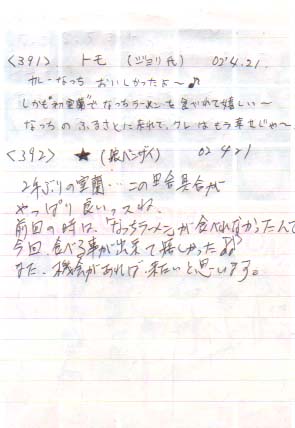 <391> トモ (ジョリ氏) 02'4.21.
カレーなっち おいしかったよ～♪
しかも"初室蘭"で なっちラーメンも食べれて嬉しい～
なっちのふるさとに来れて、クレはもう幸せじゃ～
<392> ★ (娘バンザイ) 02 4 21
2年ぶりの室蘭…この田舎具合が
やっぱり良いっスね。
前回の時は、なっちラーメンが食べれなかったんで
今回、食べる事が出来て嬉しかった
また、機会があれば来たいと思います。